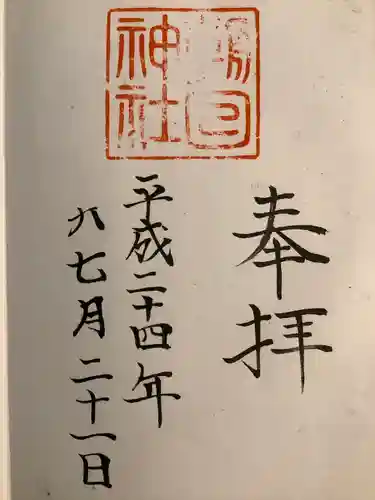 神社
奉拝
平成二十四年
八七月二十一日